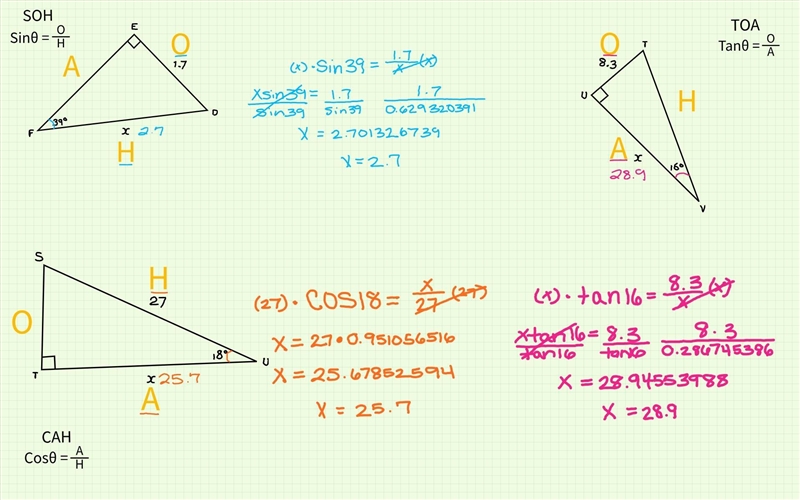 SOH
Sinθ = O/H
E
O
1.7
A
F
39°
D
x 2.7
H
(x) · Sin 39 = 1.7/x (x)
xsin39/sin39 = 1.7/sin39 1.7/0.629320391
X = 2.701326739
X = 2.7
TOA
Tanθ = O/A
O
8.3
T
U
H
A x
28.9
16°
V
S
H
27
O
T
18°
U
x 25.7
A
CAH
Cosθ = A/H
(27) · COS18 = x/27 (27)
X = 27 • 0.951056516
X = 25.67852594
X = 25.7
(x) · tan16 = 8.3/x (x)
xtan16/tan16 = 8.3/tan16 8.3/0.286745386
X = 28.94553988
X = 28.9